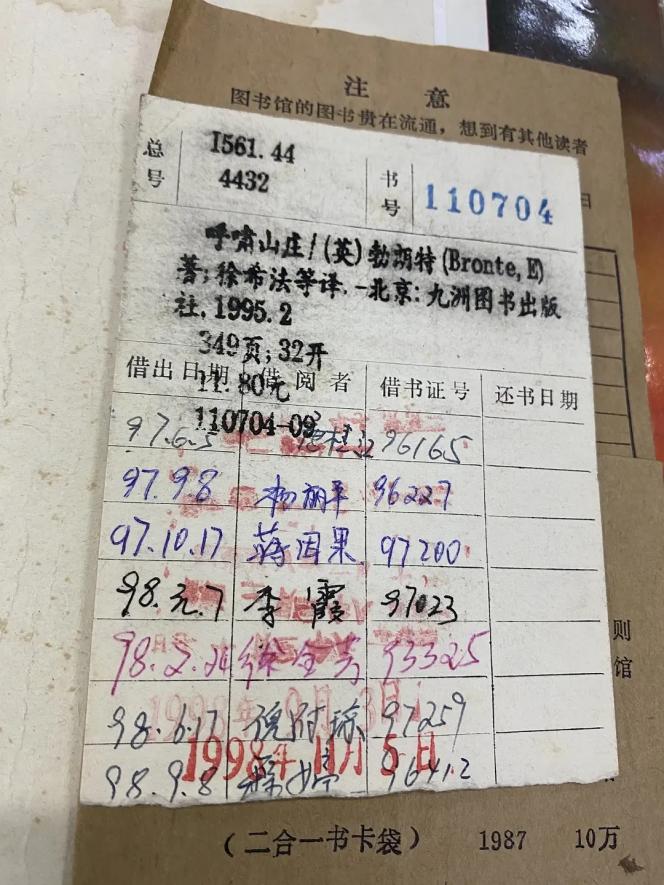 注 意
图书馆的图书贵在流通，想到有其他读者
总号
I561.44
4432
书号
110704
呼啸山庄/(英)勃朗特(Bronte,E)
著;徐希法等译.-北京:九洲图书出版
社,1995.2
349页;32开
11.80元
借出日期 借阅者 借书证号 还书日期
110704-09
97.6.5 96165
97.9.8 杨丽平 96227
97.10.17 蒋因果 97200
98.元.7 李霞 97023
98.2.24 徐全芳 93325
98.6.17 97259
1998年11月5日
98.9.8 96412
则
馆
(二合一书卡袋) 1987 10万